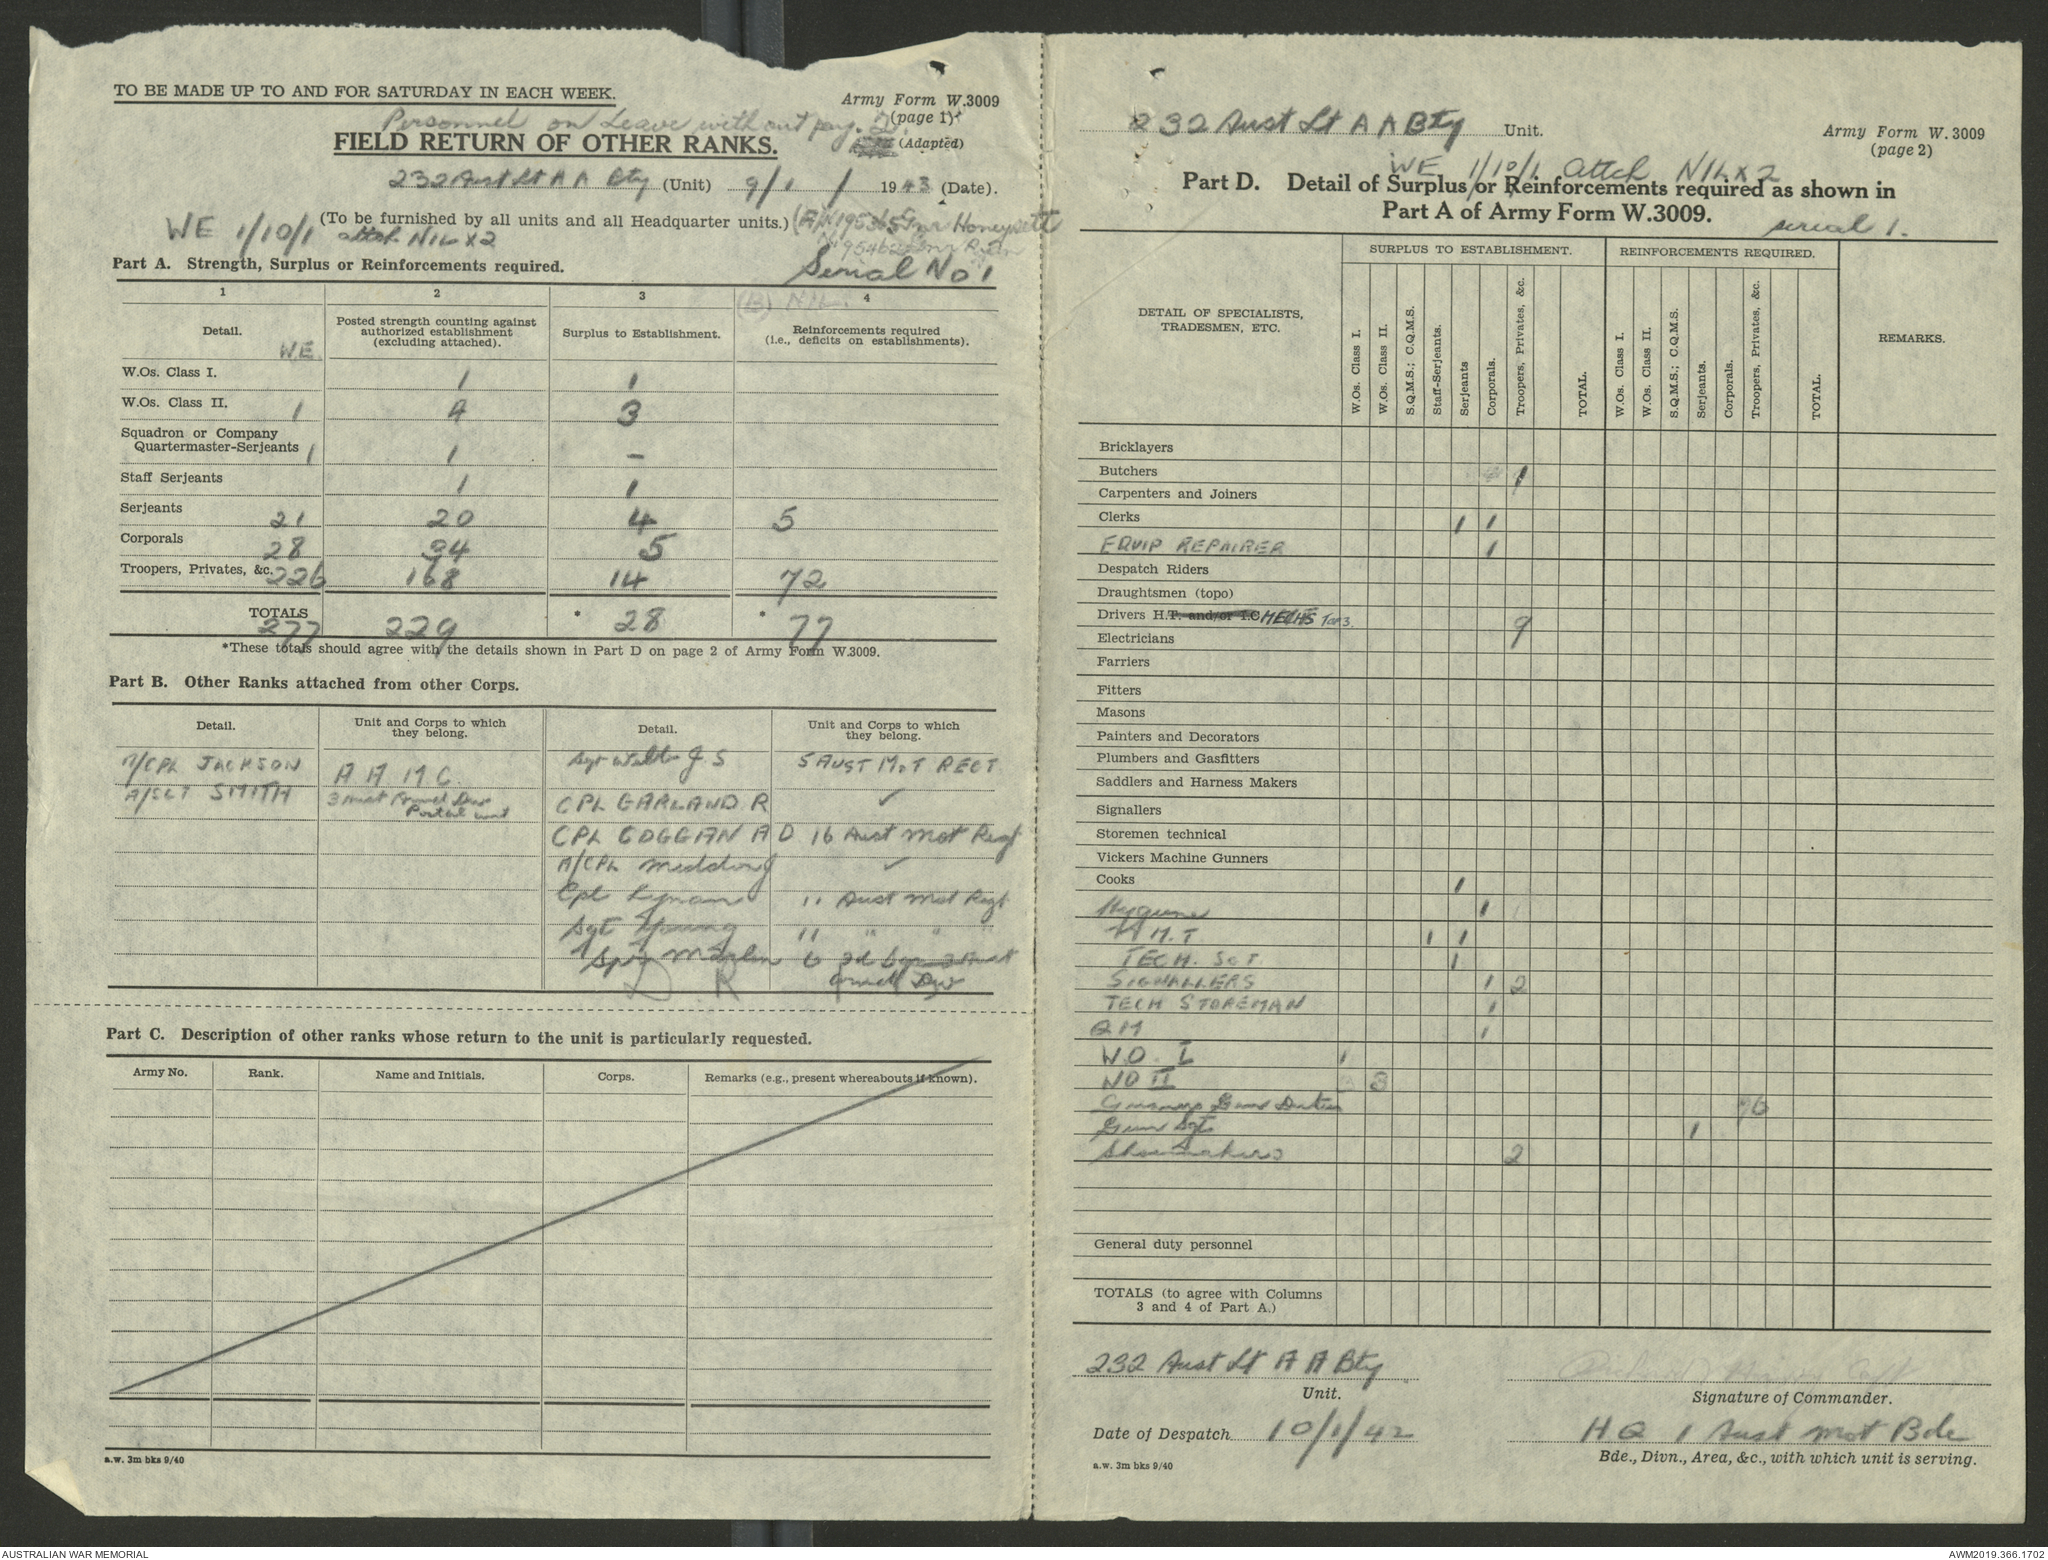 TO BE MADE UP TO AND FOR SATURDAY IN EACH WEEK.
Army Form W.3009
(page 1)
Personnel on Leave without pay. 2.
FIELD RETURN OF OTHER RANKS.
(Adapted)
232 Aust Lt A A Bty (Unit) 9/1/1943 (Date).
(To be furnished by all units and all Headquarter units.) (A) N195365 Gnr Honeysett
WE 1/10/1 attch N1L x 2
Part A. Strength, Surplus or Reinforcements required.
Serial No 1
(B) NIL.
1 2 3 4
Detail. W.E.
Posted strength counting against authorized establishment (excluding attached).
Surplus to Establishment.
Reinforcements required (i.e., deficits on establishments).
W.Os. Class I. 1 1
W.Os. Class II. 1 4 3
Squadron or Company
Quartermaster-Serjeants 1 1 –
Staff Serjeants 1 1
Serjeants 21 20 4 5
Corporals 28 34 5
Troopers, Privates, &c. 226 168 14 72
TOTALS 277 229 * 28 * 77
*These totals should agree with the details shown in Part D on page 2 of Army Form W.3009.
Part B. Other Ranks attached from other Corps.
Detail. Unit and Corps to which they belong. Detail. Unit and Corps to which they belong.
CPL JACKSON A A M C. Sgt J. S 5 AUST MOT REGT
SMITH Postal unit CPL GARLAND R ✓
CPL COGGAN A D 16 Aust Mot Regt
A/CPL ✓
Cpl 11 Aust Mot Regt
Sgt Young 11 " "
6
D R
Part C. Description of other ranks whose return to the unit is particularly requested.
Army No. Rank. Name and Initials. Corps. Remarks (e.g., present whereabouts if known).
a.w. 3m bks 9/40
232 Aust Lt A A Bty Unit.
Army Form W. 3009
(page 2)
WE 1/10/1 attch N1L x 2
Part D. Detail of Surplus or Reinforcements required as shown in
Part A of Army Form W.3009.
serial 1.
DETAIL OF SPECIALISTS, TRADESMEN, ETC.
SURPLUS TO ESTABLISHMENT.
REINFORCEMENTS REQUIRED.
REMARKS.
W.Os. Class I.
W.Os. Class II.
S.Q.M.S.; C.Q.M.S.
Staff-Serjeants.
Serjeants
Corporals.
Troopers, Privates, &c.
TOTAL.
W.Os. Class I.
W.Os. Class II.
S.Q.M.S.; C.Q.M.S.
Serjeants.
Corporals.
Troopers, Privates, &c.
TOTAL.
Bricklayers
Butchers 1
Carpenters and Joiners
Clerks 1 1
EQUIP REPAIRER 1
Despatch Riders
Draughtsmen (topo)
Drivers H.T. and/or I.C MECHS 9
Electricians
Farriers
Fitters
Masons
Painters and Decorators
Plumbers and Gasfitters
Saddlers and Harness Makers
Signallers
Storemen technical
Vickers Machine Gunners
Cooks 1
Hygiene 1
M.T 1 1
TECH. SGT. 1
SIGNALLERS 1 2
TECH STOREMAN 1
QM 1
W.O. I 1
WO II 3
Gunners Gun Duties 76
Gun Sgts 1
Shoemakers 2
General duty personnel
TOTALS (to agree with Columns
3 and 4 of Part A.)
232 Aust Lt A A Bty
Unit.
Signature of Commander.
Date of Despatch 10/1/42
HQ 1 Aust Mot Bde
Bde., Divn., Area, &c., with which unit is serving.
a.w. 3m bks 9/40
AUSTRALIAN WAR MEMORIAL
AWM2019.366.1702